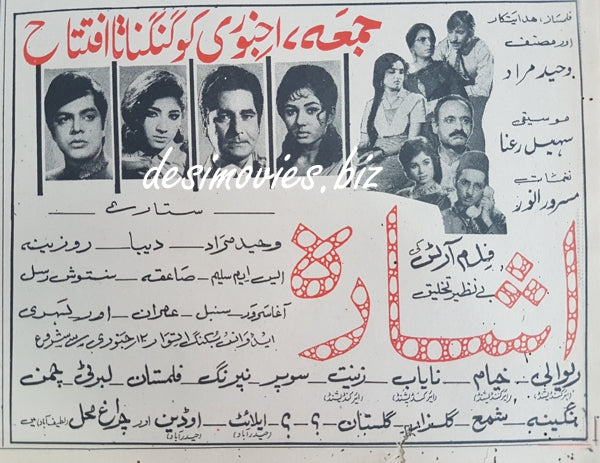 جمعہ، ۱۷ جنوری کو گنگناتا افتتاح
فلمساز، ہدایتکار
اور مصنف
وحید مراد
موسیقی
سہیل رعنا
نغمات
مسرور انور
desimovies.biz
ستارے
وحید مراد - دیبا - روزینہ
ایس ایم سلیم - صاعقہ - سنتوش رسل
آغا سرور - سنبل - عمران - اور لہری
ایڈوانس بکنگ اتوار ۱۲ جنوری سے شروع
فلم آرٹس کی
بے نظیر تخلیق
اشارہ
ریوالی - خیام - نایاب - زینت - سوپر - نیرنگ - فلمستان - لبرٹی - چمن
(ایرکنڈیشنڈ) (ایرکنڈیشنڈ) (ایرکنڈیشنڈ)
نگینہ - شمع - گلزار - گلستان - ؟ - ؟ - ایلائٹ - اوڈین اور چراغ محل
(حیدرآباد) (حیدرآباد) (لطیف آباد) میں